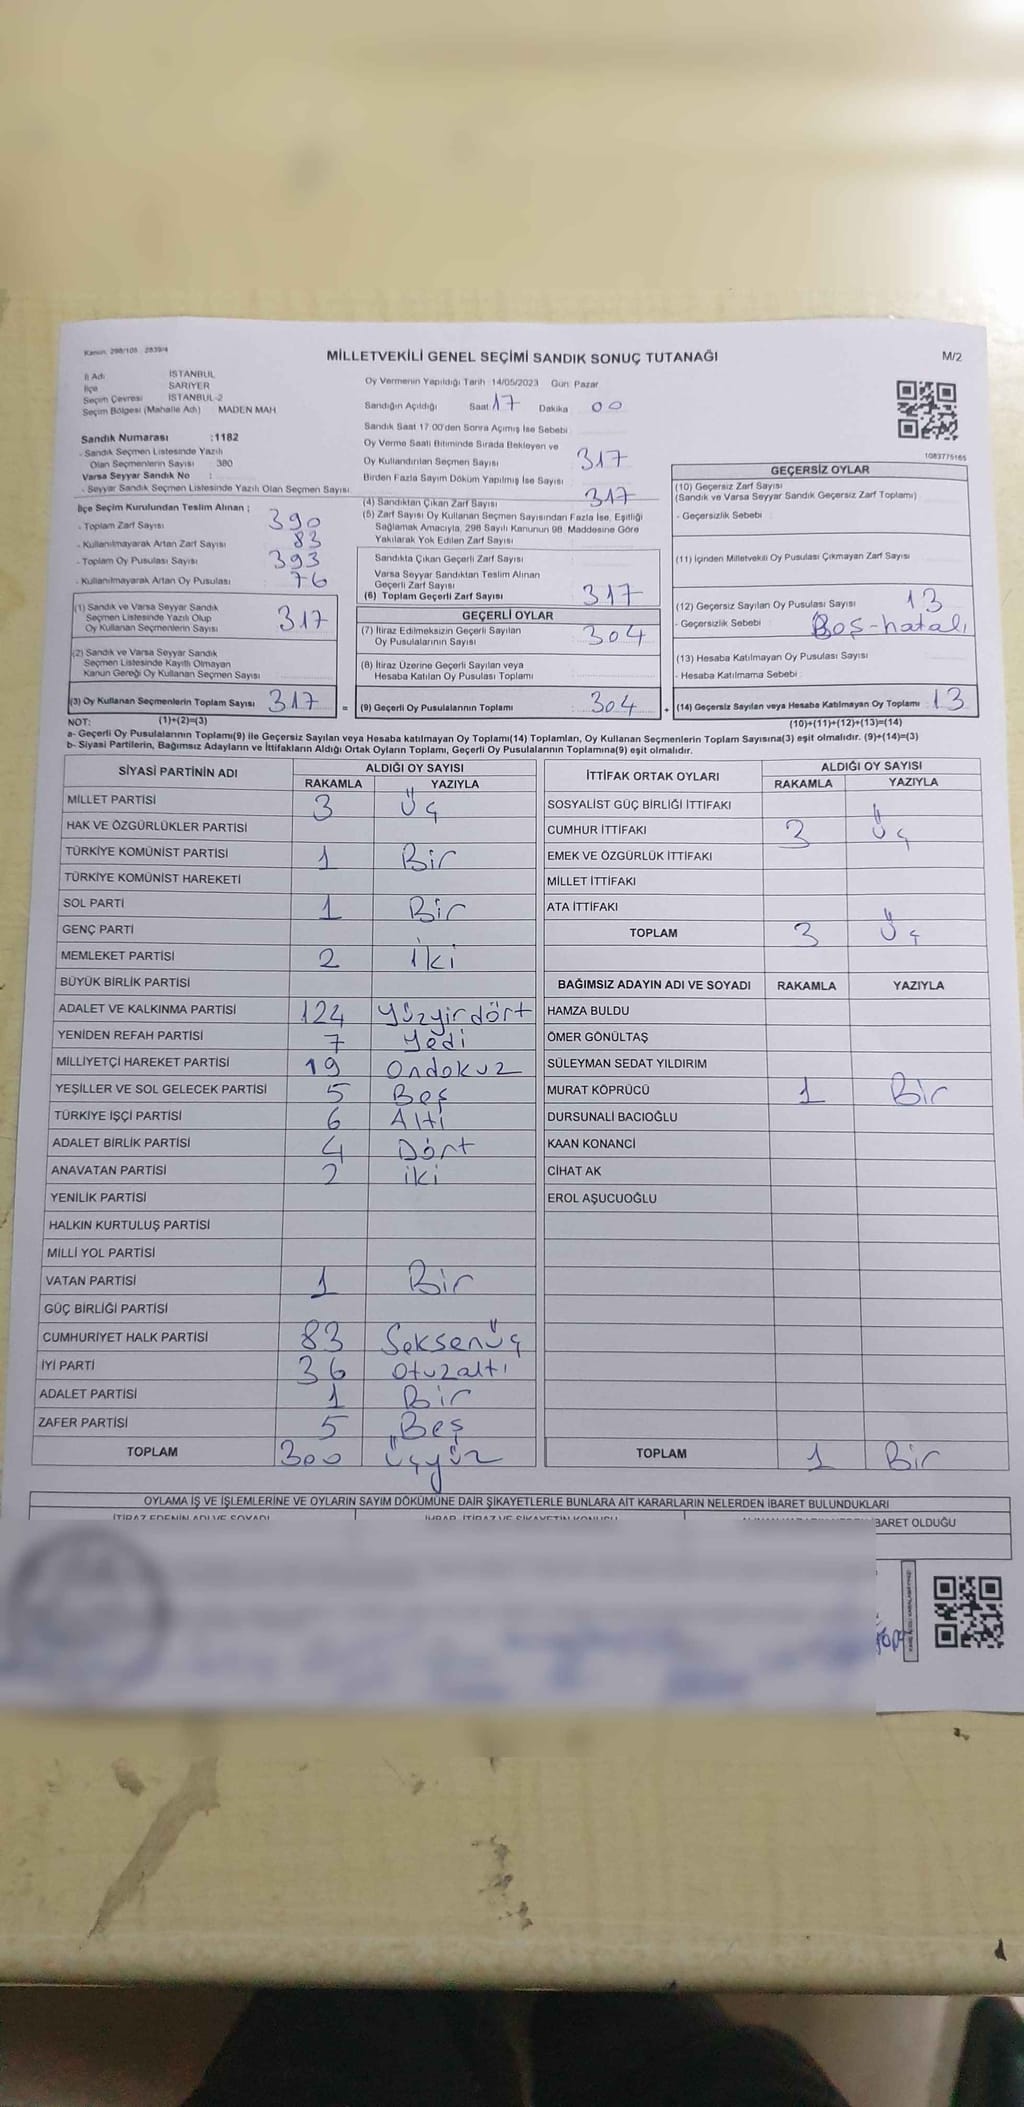 Kanun: 298/105 2839/4
MİLLETVEKİLİ GENEL SEÇİMİ SANDIK SONUÇ TUTANAĞI
M/2
İl Adı İSTANBUL
İlçe SARIYER
Seçim Çevresi İSTANBUL-2
Seçim Bölgesi (Mahalle Adı) MADEN MAH
Sandık Numarası :1182
- Sandık Seçmen Listesinde Yazılı
Olan Seçmenlerin Sayısı 380
Varsa Seyyar Sandık No :
- Seyyar Sandık Seçmen Listesinde Yazılı Olan Seçmen Sayısı
İlçe Seçim Kurulundan Teslim Alınan ;
- Toplam Zarf Sayısı 390
- Kullanılmayarak Artan Zarf Sayısı 83
- Toplam Oy Pusulası Sayısı 393
- Kullanılmayarak Artan Oy Pusulası 76
(1) Sandık ve Varsa Seyyar Sandık
Seçmen Listesinde Yazılı Olup
Oy Kullanan Seçmenlerin Sayısı 317
(2) Sandık ve Varsa Seyyar Sandık
Seçmen Listesinde Kayıtlı Olmayan
Kanun Gereği Oy Kullanan Seçmen Sayısı
(3) Oy Kullanan Seçmenlerin Toplam Sayısı 317 =
Oy Vermenin Yapıldığı Tarih :14/05/2023 Gün: Pazar
Sandığın Açıldığı Saat 17 Dakika 00
Sandık Saat 17:00'den Sonra Açımış İse Sebebi
Oy Verme Saati Bitiminde Sırada Bekleyen ve
Oy Kullandırılan Seçmen Sayısı 317
Birden Fazla Sayım Döküm Yapılmış İse Sayısı
(4) Sandıktan Çıkan Zarf Sayısı 317
(5) Zarf Sayısı Oy Kullanan Seçmen Sayısından Fazla İse, Eşitliği
Sağlamak Amacıyla, 298 Sayılı Kanunun 98. Maddesine Göre
Yakılarak Yok Edilen Zarf Sayısı
Sandıkta Çıkan Geçerli Zarf Sayısı
Varsa Seyyar Sandıktan Teslim Alınan
Geçerli Zarf Sayısı
(6) Toplam Geçerli Zarf Sayısı 317
GEÇERLİ OYLAR
(7) İtiraz Edilmeksizin Geçerli Sayılan
Oy Pusulalarının Sayısı 304
(8) İtiraz Üzerine Geçerli Sayılan veya
Hesaba Katılan Oy Pusulası Toplamı
(9) Geçerli Oy Pusulalarının Toplamı 304 +
1083775165
GEÇERSİZ OYLAR
(10) Geçersiz Zarf Sayısı
(Sandık ve Varsa Seyyar Sandık Geçersiz Zarf Toplamı)
- Geçersizlik Sebebi :
(11) İçinden Milletvekili Oy Pusulası Çıkmayan Zarf Sayısı
(12) Geçersiz Sayılan Oy Pusulası Sayısı 13
- Geçersizlik Sebebi : Boş-hatalı
(13) Hesaba Katılmayan Oy Pusulası Sayısı
- Hesaba Katılmama Sebebi
(14) Geçersiz Sayılan veya Hesaba Katılmayan Oy Toplamı : 13
NOT: (1)+(2)=(3) (10)+(11)+(12)+(13)=(14)
a- Geçerli Oy Pusulalarının Toplamı(9) ile Geçersiz Sayılan veya Hesaba katılmayan Oy Toplamı(14) Toplamları, Oy Kullanan Seçmenlerin Toplam Sayısına(3) eşit olmalıdır. (9)+(14)=(3)
b- Siyasi Partilerin, Bağımsız Adayların ve İttifakların Aldığı Ortak Oyların Toplamı, Geçerli Oy Pusulalarının Toplamına(9) eşit olmalıdır.
SİYASİ PARTİNİN ADI ALDIĞI OY SAYISI
RAKAMLA YAZIYLA
MİLLET PARTİSİ 3 Üç
HAK VE ÖZGÜRLÜKLER PARTİSİ
TÜRKİYE KOMÜNİST PARTİSİ 1 Bir
TÜRKİYE KOMÜNİST HAREKETİ
SOL PARTİ 1 Bir
GENÇ PARTİ
MEMLEKET PARTİSİ 2 İki
BÜYÜK BİRLİK PARTİSİ
ADALET VE KALKINMA PARTİSİ 124 Yüzyirdört
YENİDEN REFAH PARTİSİ 7 Yedi
MİLLİYETÇİ HAREKET PARTİSİ 19 Ondokuz
YEŞİLLER VE SOL GELECEK PARTİSİ 5 Beş
TÜRKİYE İŞÇİ PARTİSİ 6 Altı
ADALET BİRLİK PARTİSİ 4 Dört
ANAVATAN PARTİSİ 2 iki
YENİLİK PARTİSİ
HALKIN KURTULUŞ PARTİSİ
MİLLİ YOL PARTİSİ
VATAN PARTİSİ 1 Bir
GÜÇ BİRLİĞİ PARTİSİ
CUMHURİYET HALK PARTİSİ 83 Seksenüç
İYİ PARTİ 36 Otuzaltı
ADALET PARTİSİ 1 Bir
ZAFER PARTİSİ 5 Beş
TOPLAM 300 Üçyüz
İTTİFAK ORTAK OYLARI ALDIĞI OY SAYISI
RAKAMLA YAZIYLA
SOSYALİST GÜÇ BİRLİĞİ İTTİFAKI
CUMHUR İTTİFAKI 3 Üç
EMEK VE ÖZGÜRLÜK İTTİFAKI
MİLLET İTTİFAKI
ATA İTTİFAKI
TOPLAM 3 Üç
BAĞIMSIZ ADAYIN ADI VE SOYADI RAKAMLA YAZIYLA
HAMZA BULDU
ÖMER GÖNÜLTAŞ
SÜLEYMAN SEDAT YILDIRIM
MURAT KÖPRÜCÜ 1 Bir
DURSUNALİ BACIOĞLU
KAAN KONANCİ
CİHAT AK
EROL AŞUCUOĞLU
TOPLAM 1 Bir
OYLAMA İŞ VE İŞLEMLERİNE VE OYLARIN SAYIM DÖKÜMÜNE DAİR ŞİKAYETLERLE BUNLARA AİT KARARLARIN NELERDEN İBARET BULUNDUKLARI
İTİRAZ EDENİN ADI VE SOYADI İHBAR, İTİRAZ VE ŞİKAYETİN KONUSU BARET OLDUĞU